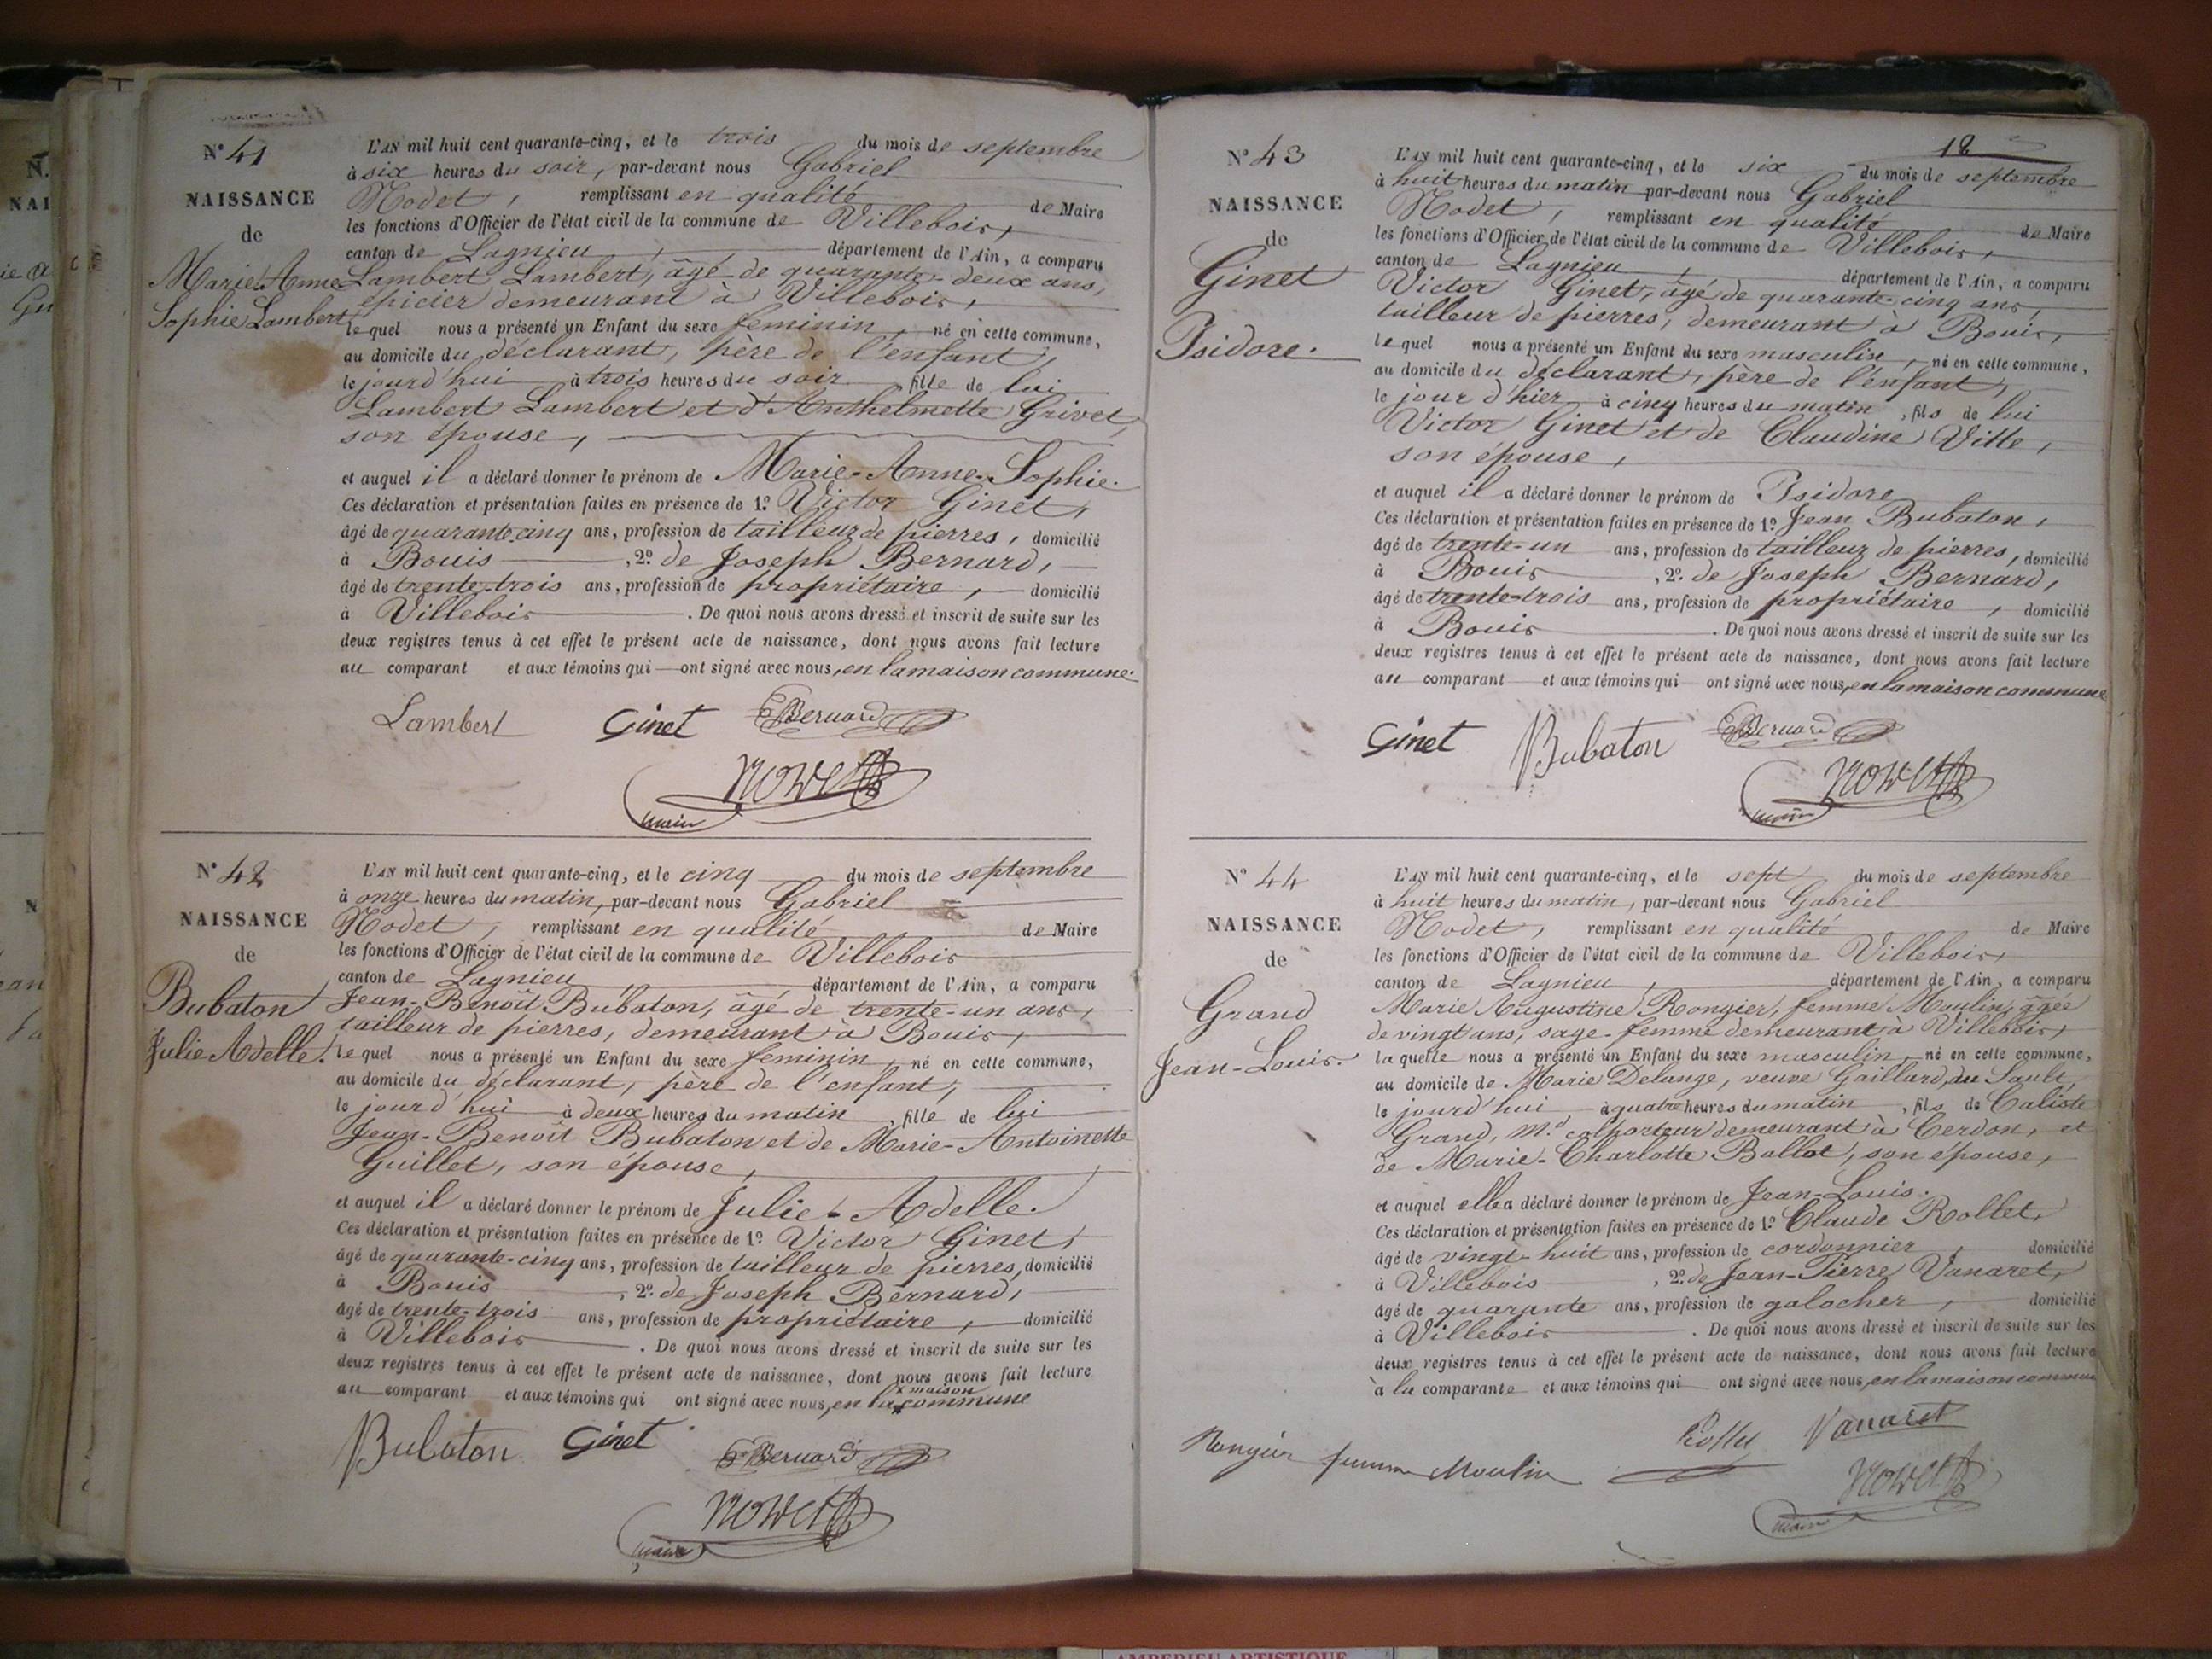 N° 41
NAISSANCE
de
Marie Anne
Sophie Lambert
L'AN mil huit cent quarante-cinq, et le trois du mois de septembre
à six heures du soir, par-devant nous Gabriel
Nodet, remplissant en qualité de Maire
les fonctions d'Officier de l'état civil de la commune de Villebois,
canton de Lagnieu, département de l'Ain, a comparu
Lambert Lambert, âgé de quarante-deux ans,
épicier demeurant à Villebois,
lequel nous a présenté un Enfant du sexe féminin, né en cette commune,
au domicile du déclarant, père de l'enfant,
le jourd'hui à trois heures du soir fille de lui
Lambert Lambert et d'Anthelmette Grivet,
son épouse,
et auquel il a déclaré donner le prénom de Marie-Anne-Sophie.
Ces déclaration et présentation faites en présence de 1.° Victor Ginet,
âgé de quarante-cinq ans, profession de tailleur de pierres, domicilié
à Bouis, 2.° de Joseph Bernard,
âgé de trente-trois ans, profession de propriétaire, domicilié
à Villebois. De quoi nous avons dressé et inscrit de suite sur les
deux registres tenus à cet effet le présent acte de naissance, dont nous avons fait lecture
au comparant et aux témoins qui ont signé avec nous, en la maison commune.
Lambert Ginet Bernard
Nodet
maire
N° 42
NAISSANCE
de
Bubaton
Julie Adelle.
L'AN mil huit cent quarante-cinq, et le cinq du mois de septembre
à onze heures du matin, par-devant nous Gabriel
Nodet, remplissant en qualité de Maire
les fonctions d'Officier de l'état civil de la commune de Villebois
canton de Lagnieu, département de l'Ain, a comparu
Jean-Benoît Bubaton, âgé de trente-un ans,
tailleur de pierres, demeurant à Bouis,
lequel nous a présenté un Enfant du sexe féminin, né en cette commune,
au domicile du déclarant, père de l'enfant,
le jourd'hui à deux heures du matin, fille de lui
Jean-Benoît Bubaton et de Marie-Antoinette
Guillet, son épouse,
et auquel il a déclaré donner le prénom de Julie-Adelle.
Ces déclaration et présentation faites en présence de 1.° Victor Ginet,
âgé de quarante-cinq ans, profession de tailleur de pierres, domicilié
à Bouis, 2.° de Joseph Bernard,
âgé de trente-trois ans, profession de propriétaire, domicilié
à Villebois. De quoi nous avons dressé et inscrit de suite sur les
deux registres tenus à cet effet le présent acte de naissance, dont nous avons fait lecture
au comparant et aux témoins qui ont signé avec nous, en la maison commune
Bubaton Ginet Bernard
Nodet
maire
18
N° 43
NAISSANCE
de
Ginet
Isidore.
L'AN mil huit cent quarante-cinq, et le six du mois de septembre
à huit heures du matin par-devant nous Gabriel
Nodet, remplissant en qualité de Maire
les fonctions d'Officier de l'état civil de la commune de Villebois,
canton de Lagnieu, département de l'Ain, a comparu
Victor Ginet, âgé de quarante-cinq ans,
tailleur de pierres, demeurant à Bouis,
lequel nous a présenté un Enfant du sexe masculin, né en cette commune,
au domicile du déclarant, père de l'enfant,
le jour d'hier à cinq heures du matin, fils de lui
Victor Ginet et de Claudine Vitte,
son épouse,
et auquel il a déclaré donner le prénom de Isidore
Ces déclaration et présentation faites en présence de 1.° Jean Bubaton,
âgé de trente-un ans, profession de tailleur de pierres, domicilié
à Bouis, 2.° de Joseph Bernard,
âgé de trente-trois ans, profession de propriétaire, domicilié
à Bouis. De quoi nous avons dressé et inscrit de suite sur les
deux registres tenus à cet effet le présent acte de naissance, dont nous avons fait lecture
au comparant et aux témoins qui ont signé avec nous, en la maison commune
Ginet Bubaton Bernard
Nodet
maire
N° 44
NAISSANCE
de
Grand
Jean-Louis.
L'AN mil huit cent quarante-cinq, et le sept du mois de septembre
à huit heures du matin, par-devant nous Gabriel
Nodet, remplissant en qualité de Maire
les fonctions d'Officier de l'état civil de la commune de Villebois,
canton de Lagnieu, département de l'Ain, a comparu
Marie Augustine Rongier, femme Moulin, âgée
de vingt ans, sage-femme demeurant à Villebois,
laquelle nous a présenté un Enfant du sexe masculin, né en cette commune,
au domicile de Marie Delange, veuve Gaillard, du Sault,
le jourd'hui, à quatre heures du matin, fils de Caliste
Grand, M.d colporteur demeurant à Cerdon, et
de Marie-Charlotte Ballot, son épouse,
et auquel elle a déclaré donner le prénom de Jean-Louis.
Ces déclaration et présentation faites en présence de 1.° Claude Rollet,
âgé de vingt-huit ans, profession de cordonnier, domicilié
à Villebois, 2.° de Jean-Pierre Vanaret,
âgé de quarante ans, profession de galocher, domicilié
à Villebois. De quoi nous avons dressé et inscrit de suite sur les
deux registres tenus à cet effet le présent acte de naissance, dont nous avons fait lecture
à la comparante et aux témoins qui ont signé avec nous, en la maison commun
Rongier femme Moulin Vanaret
Nodet
maire
AMBERIEU ARTISTIQUE